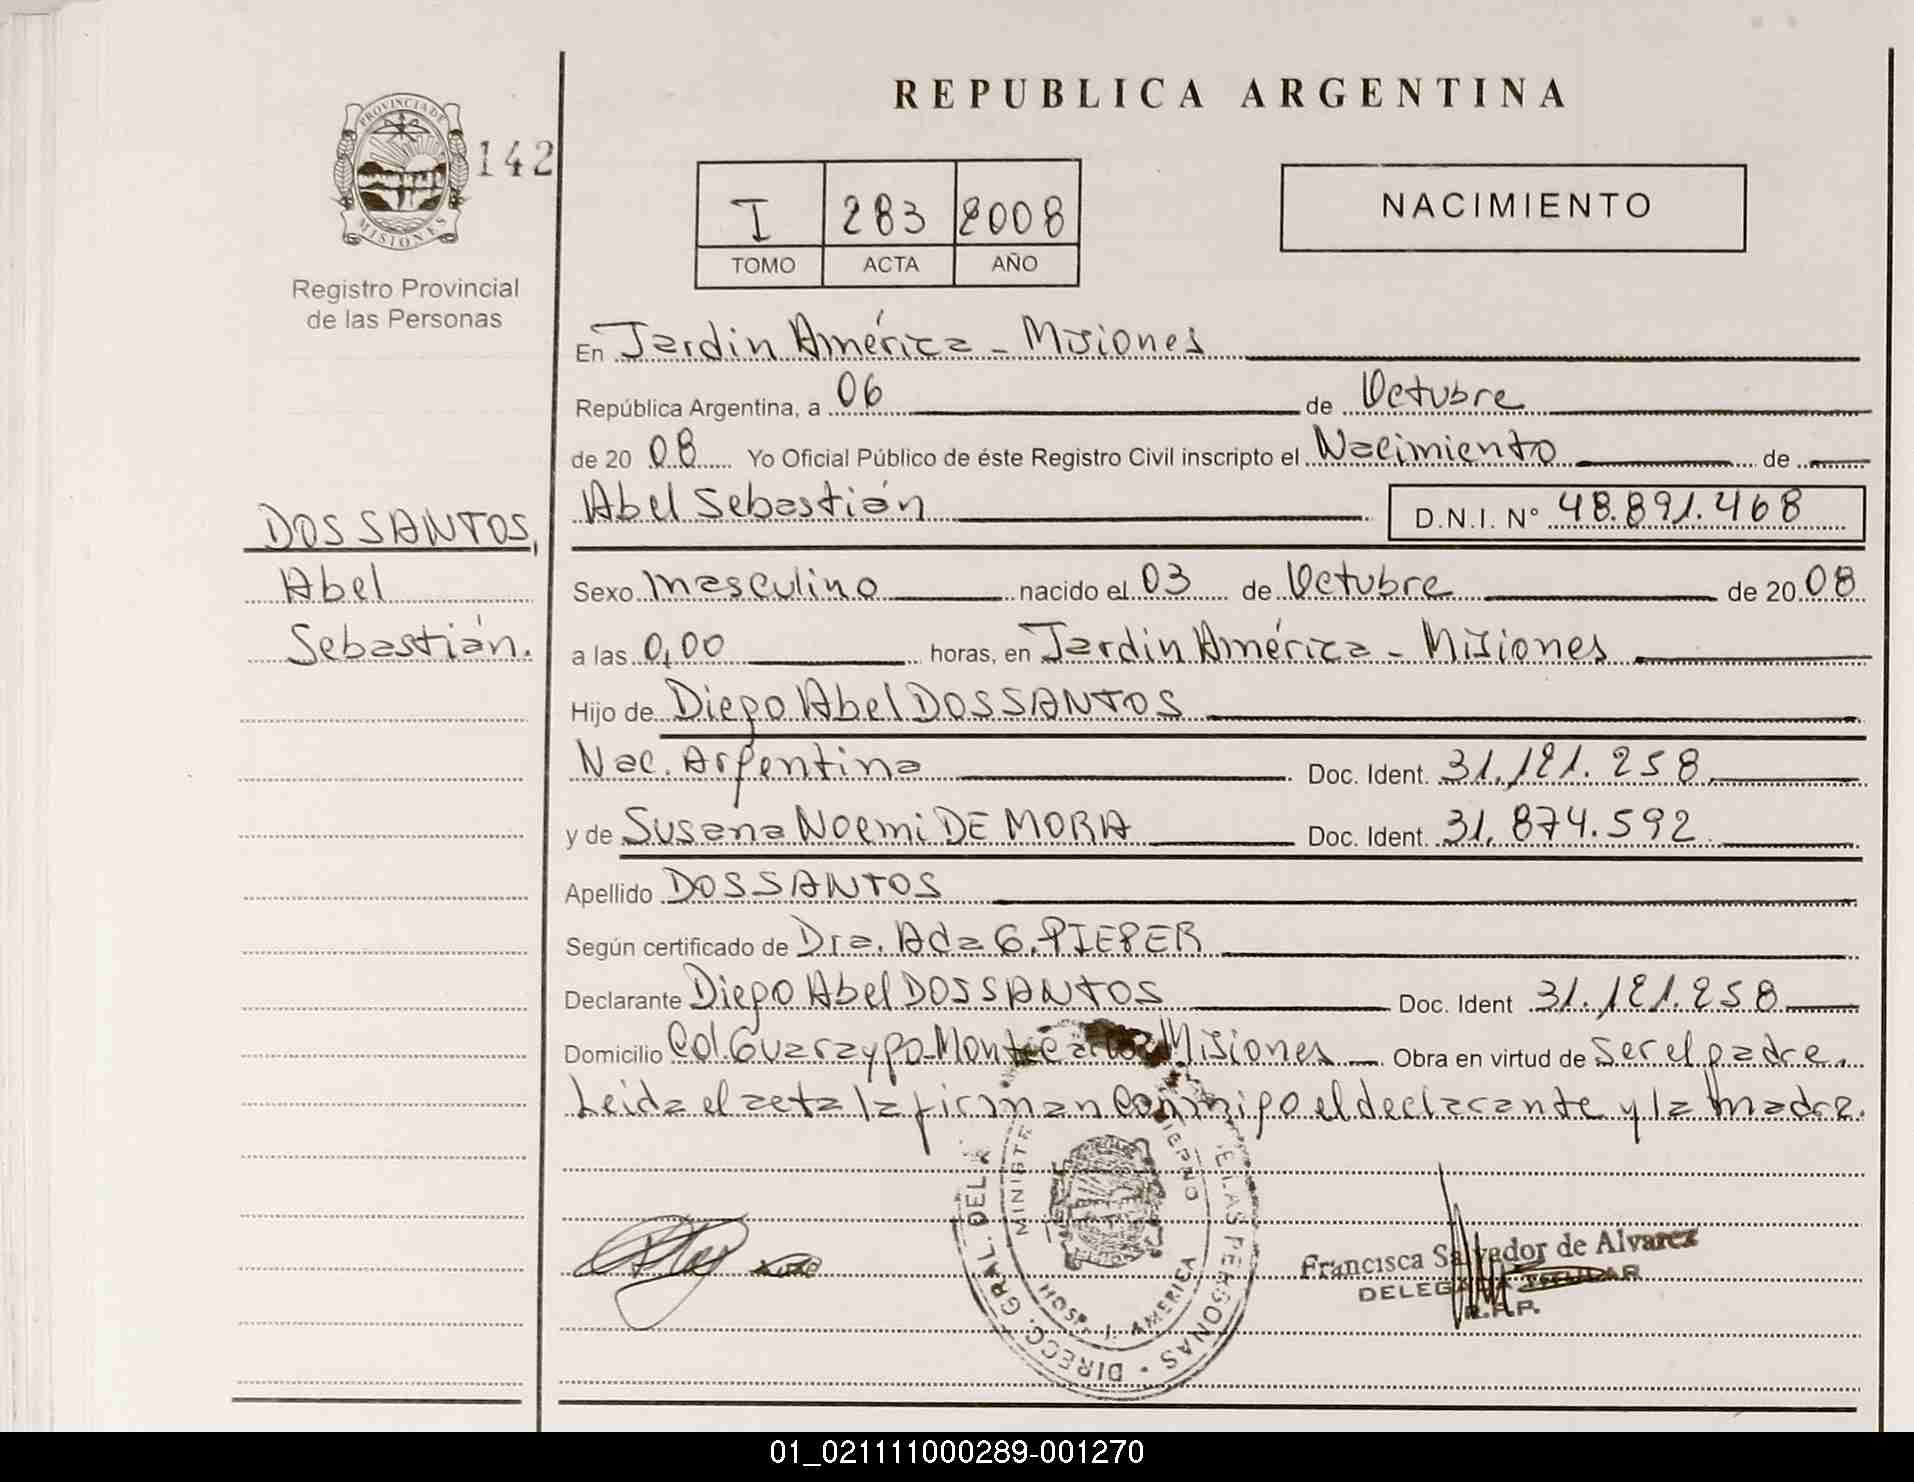 REPUBLICA ARGENTINA
PROVINCIA DE
MISIONES
142
Registro Provincial
de las Personas
I 283 2008
TOMO ACTA AÑO
NACIMIENTO
En Jardin América - Misiones
República Argentina, a 06 de Octubre
de 20 08 Yo Oficial Público de éste Registro Civil inscripto el Nacimiento de
Abel Sebastián D.N.I. Nº 48.891.468
DOS SANTOS,
Abel
Sebastián.
Sexo masculino nacido el 03 de Octubre de 20 08
a las 0,00 horas, en Jardin América - Misiones
Hijo de Diego Abel DOS SANTOS
Nac. Argentina Doc. Ident. 31.121.258
y de Susana Noemi DE MORA Doc. Ident. 31.874.592
Apellido DOS SANTOS
Según certificado de Dra. Ada G. PIEPER
Declarante Diego Abel DOS SANTOS Doc. Ident 31.121.258
Domicilio Col. Guaraypo - Montecarlo Misiones Obra en virtud de ser el padre.
Leida el acta la firman conmigo el declarante y la madre.
DIRECC. GRAL. DEL DE LAS PERSONAS
HOSP. J. AMERICA
Francisca Salvador de Alvarez
DELEGADA TITULAR
R.P.P.
01_021111000289-001270